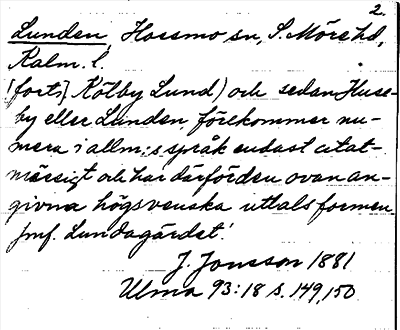 2.
Lunden, Hossmo sn, S. Möre hd,
Kalm. l.
(forts], Kölby Lund) och sedan Huse-
by eller Lunden, förekommer nu-
mera i allm:s språk endast citat-
mässigt och har därför den ovan an-
givna högsvenska uttalsformen
Jmf. Lundagärdet!
J. Jonsson 1881
Ulma 93:18 s. 149, 150